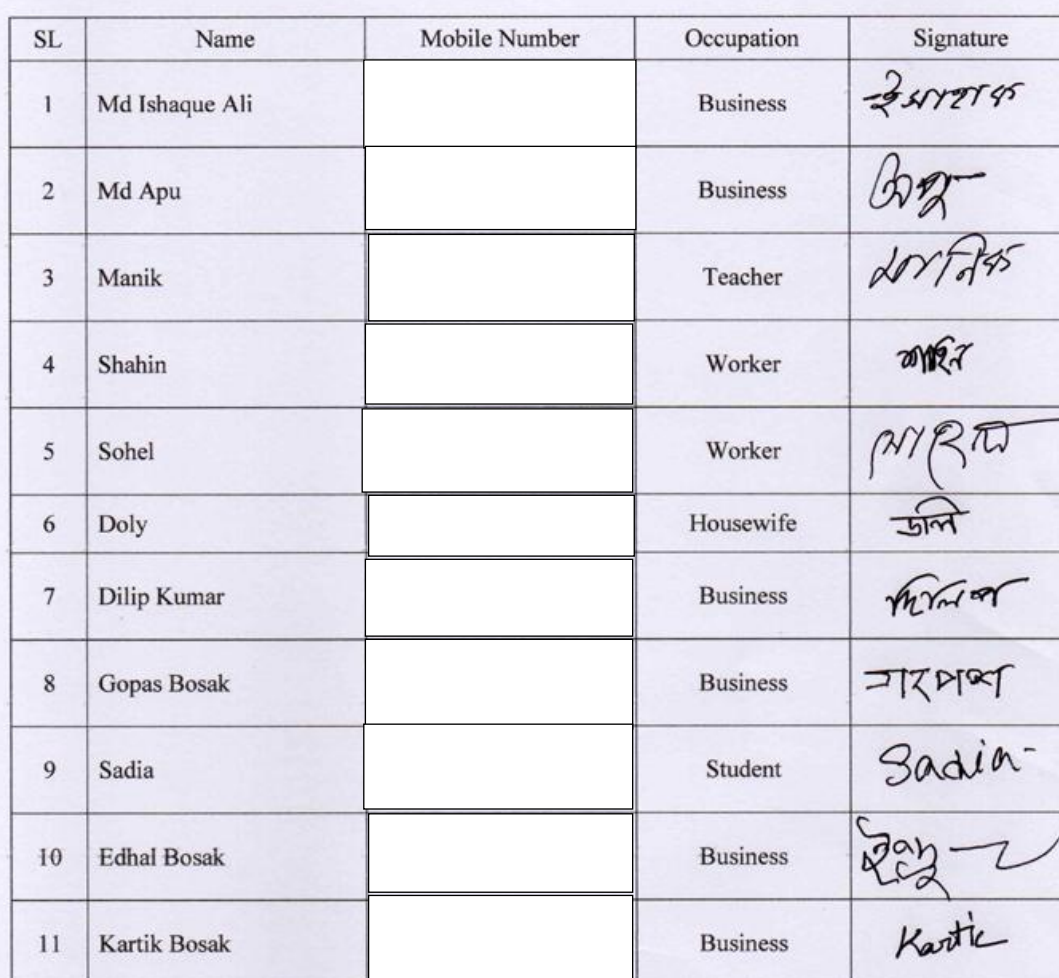 SL Name Mobile Number Occupation Signature
1 Md Ishaque Ali Business ইসাহাক
2 Md Apu Business অপু
3 Manik Teacher মানিক
4 Shahin Worker শাহিন
5 Sohel Worker
6 Doly Housewife ডলি
7 Dilip Kumar Business দিলিপ
8 Gopas Bosak Business
9 Sadia Student Sadia
10 Edhal Bosak Business
11 Kartik Bosak Business Kartic